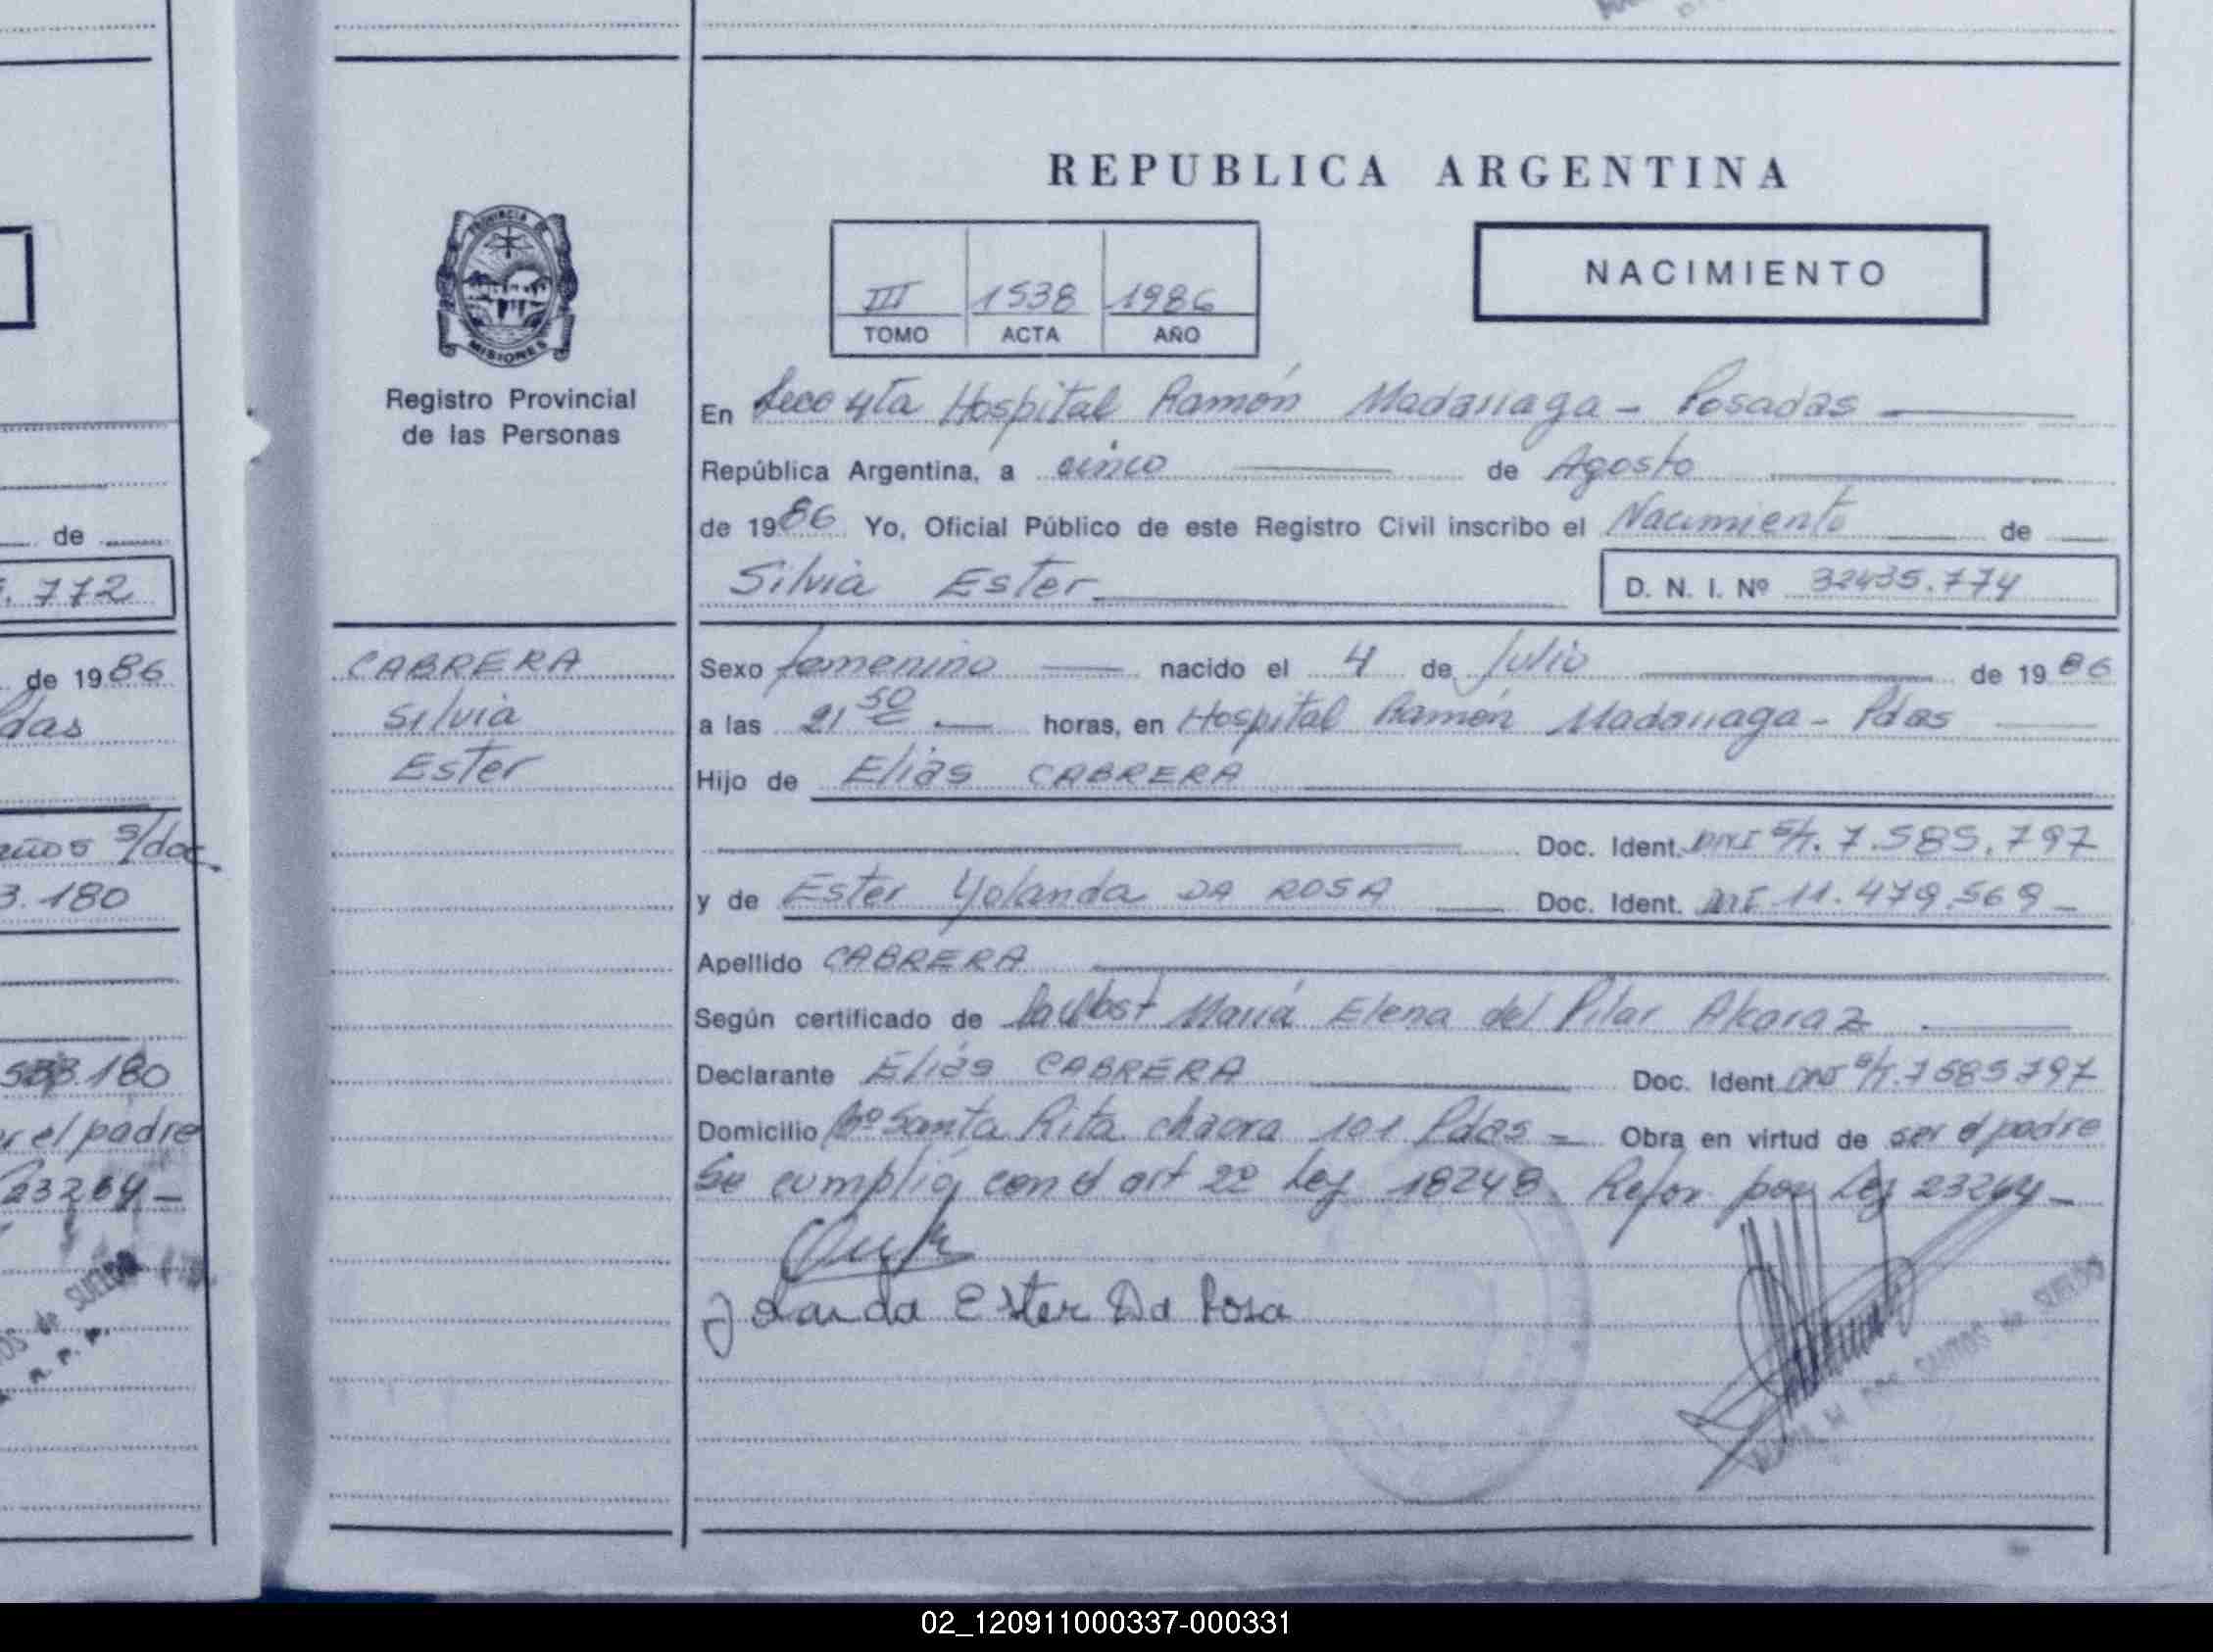 REPUBLICA ARGENTINA
PROVINCIA DE
MISIONES
Registro Provincial
de las Personas
III 1538 1986
TOMO ACTA AÑO
NACIMIENTO
En Secc 4ta Hospital Ramón Madariaga - Posadas
República Argentina, a cinco de Agosto
de 1986 Yo, Oficial Público de este Registro Civil inscribo el Nacimiento de
Silvia Ester D. N. I. Nº 32435.774
CABRERA
Silvia
Ester
Sexo femenino nacido el 4 de Julio de 1986
a las 21 50 horas, en Hospital Ramón Madariaga - Pdas
Hijo de Eliás CABRERA
Doc. Ident. DNI S/T. 7.585.797
y de Ester Yolanda DA ROSA Doc. Ident. DNI 11.479.569
Apellido CABRERA
Según certificado de María Elena del Pilar Alcaraz
Declarante Eliás CABRERA Doc. Ident. DNI S/T. 7585797
Domicilio Bº Santa Rita chacra 101 Pdas - Obra en virtud de ser el padre
Se cumplió con el art 2º Ley 18248. Refor. por Ley 23264
Jolanda Ester Da Rosa
SANTOS de SUELDO
. 772
de
de 1986
das
años s/doc
3.180
.180
r el padre
23264
de SUELDO
R. P. P.
02_120911000337-000331